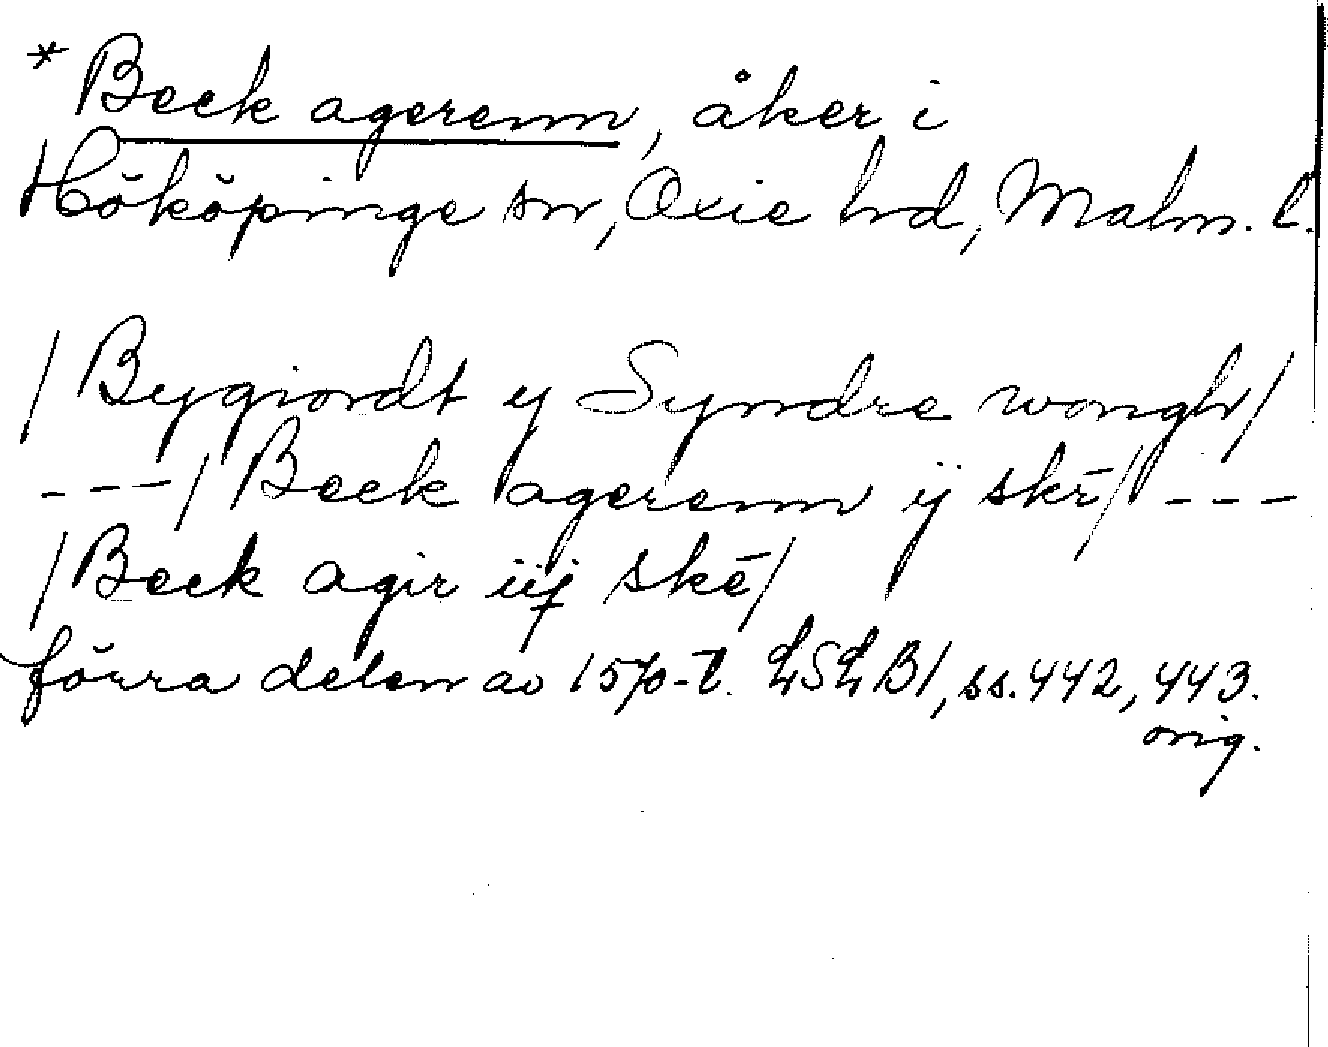 * Beck agerenn, åker i
Hököpinge sn, Oxie hd, Malm. l.
/ Bygiordt y Syndre wongh /
---/ Beck agerenn ij skē / ---
/ Beck agir iij skē /
förra delen av 1570-t. LSLB1, ss. 442, 443.
orig.